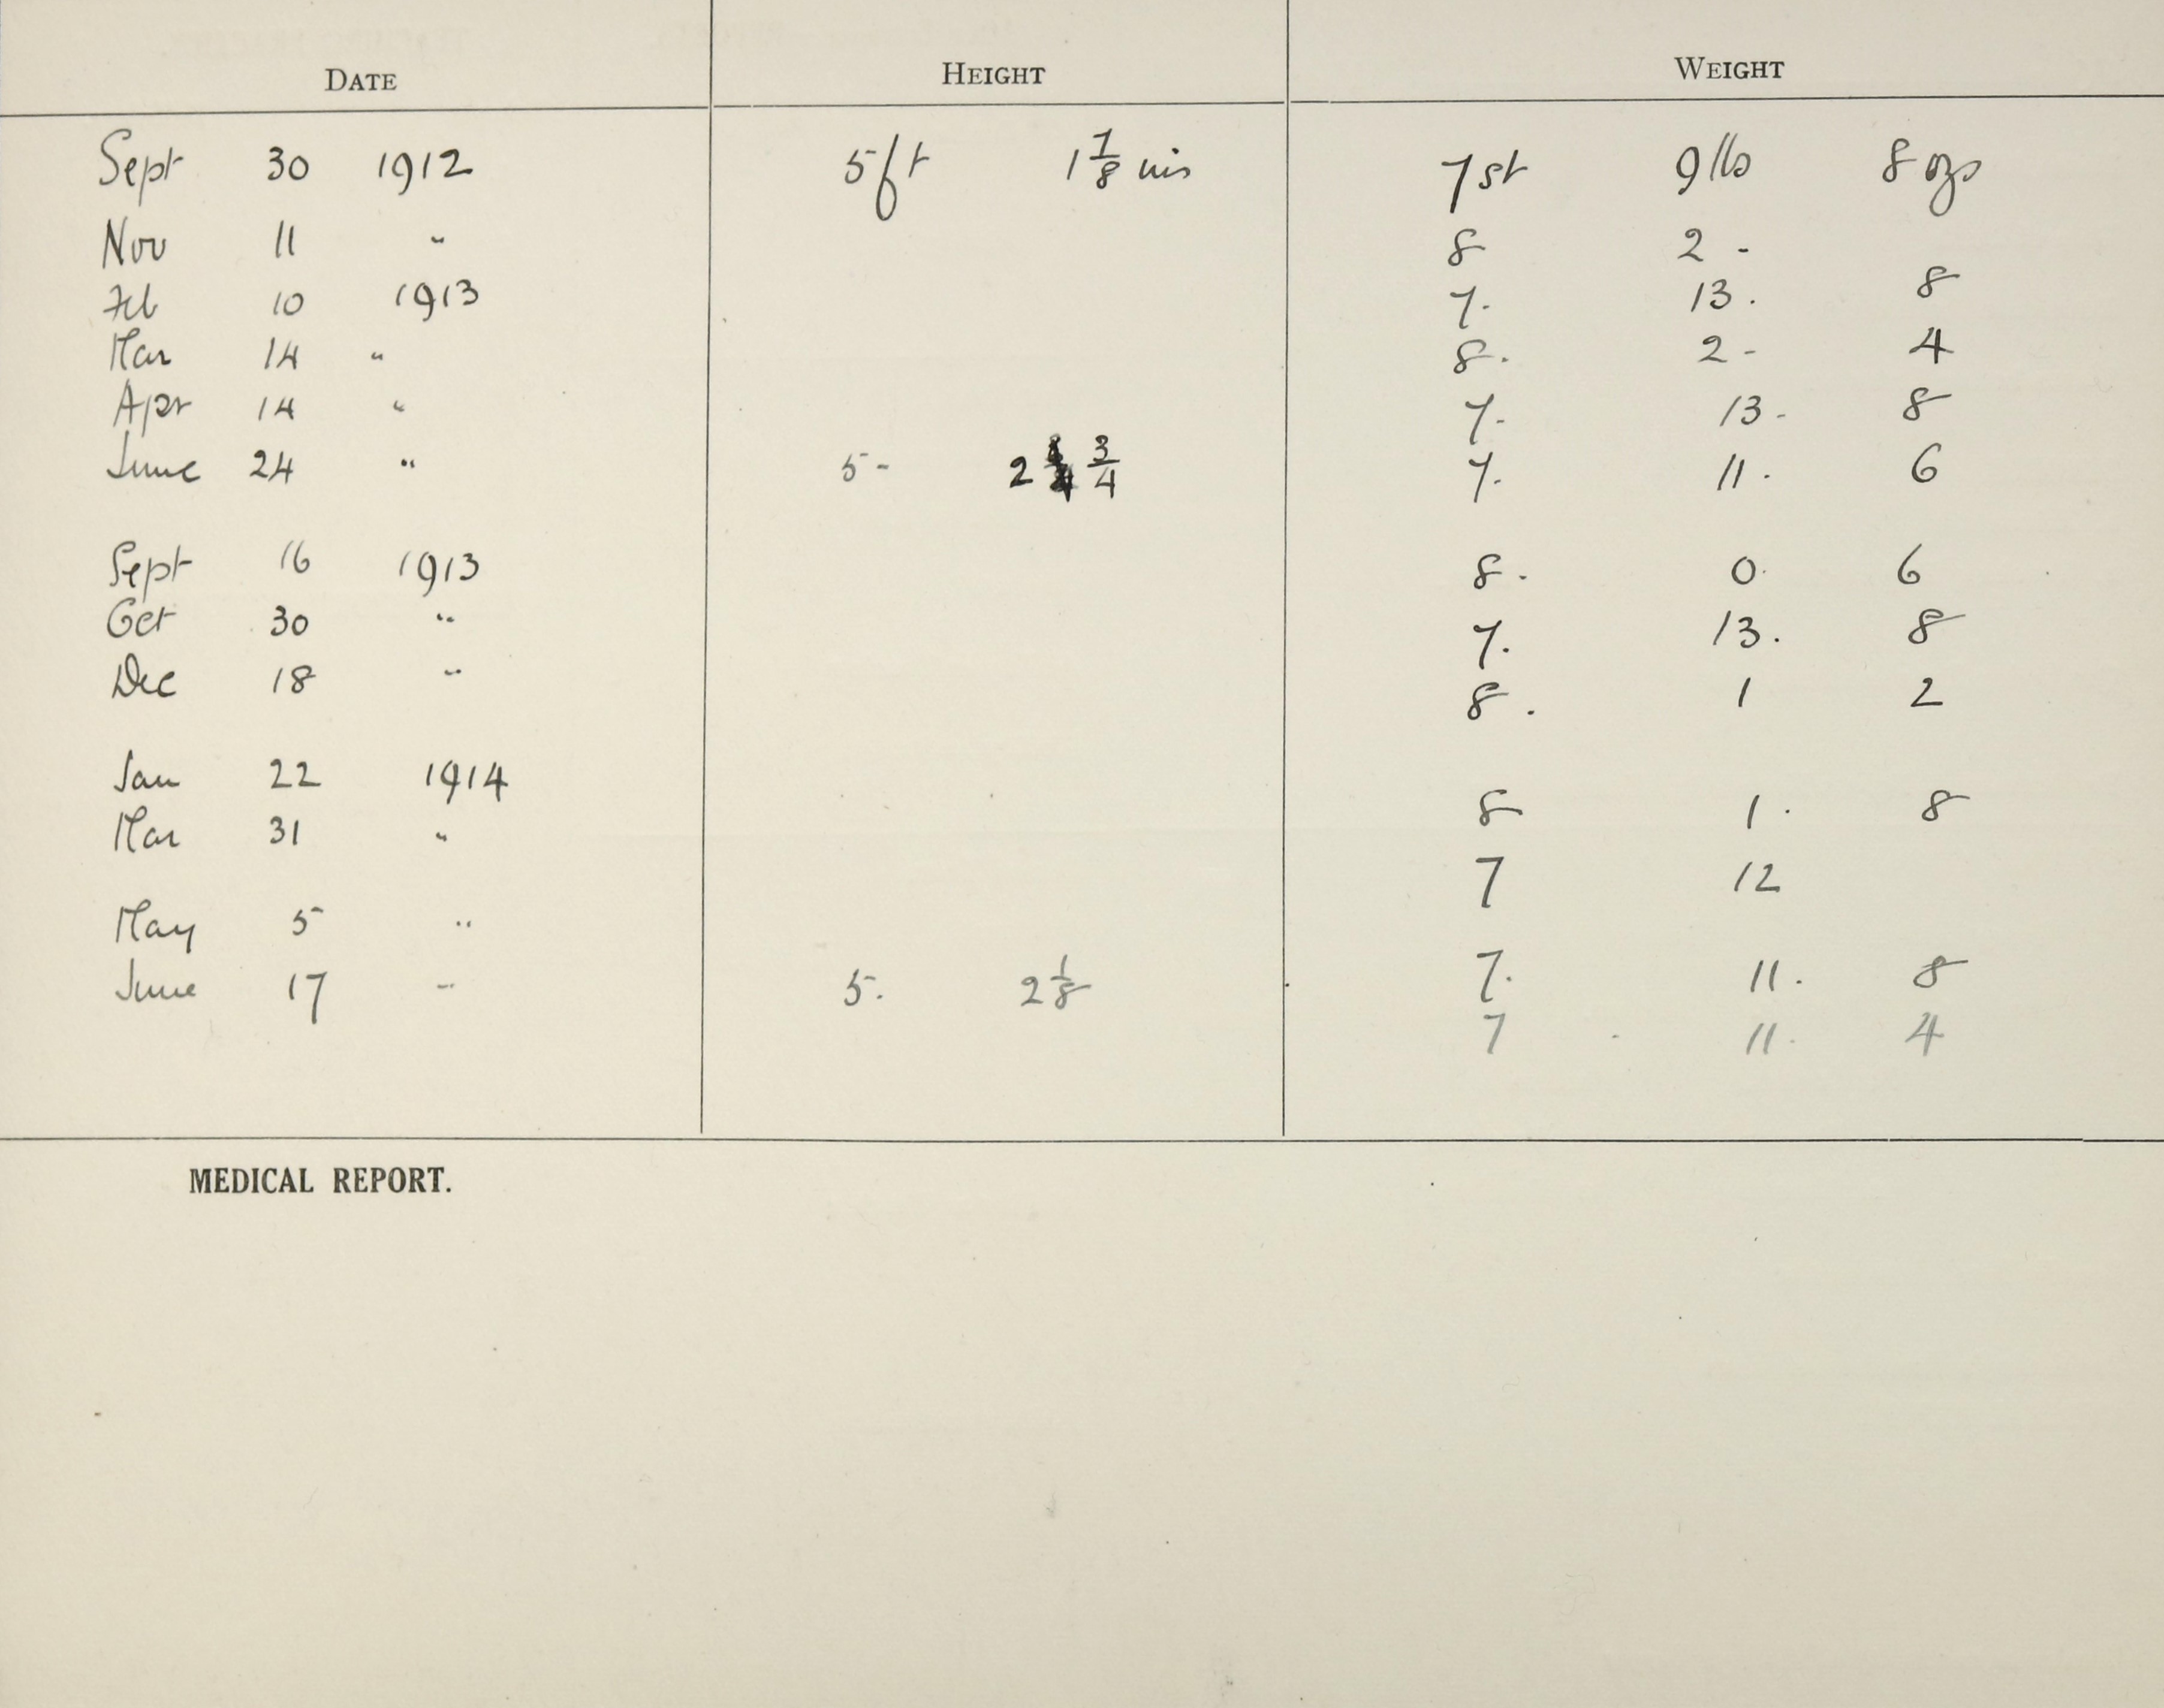 DATE HEIGHT WEIGHT
Sept 30 1912 5 ft 1 7/8 ins 7 st 9 lbs 8 ozs
Nov 11 " 8 2 -
Feb 10 1913 7. 13. 8
Mar 14 " 8. 2 - 4
Apr 14 " 7. 13 - 8
June 24 " 5 - 2 3/4 7. 11. 6
Sept 16 1913 8. 0. 6
Oct 30 " 7. 13. 8
Dec 18 " 8. 1 2
Jan 22 1914 8 1. 8
Mar 31 " 7 12
May 5 " 7. 11. 8
June 17 " 5. 2 1/8 7 11. 4
MEDICAL REPORT.